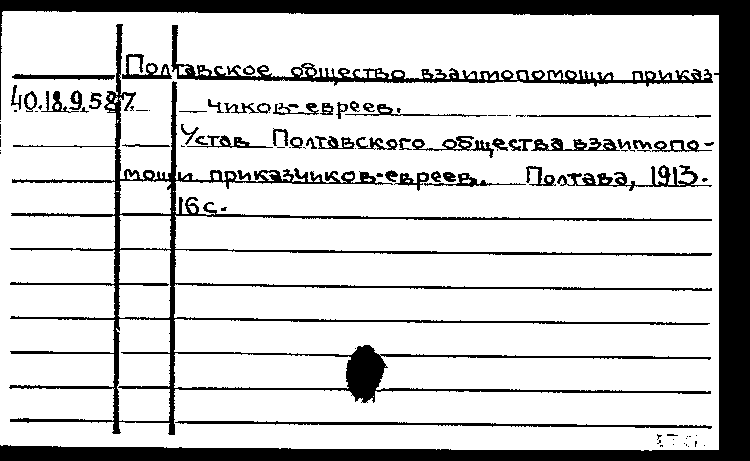 Полтавское общество взаимопомощи приказ-
40.18.9.587 чиков-евреев.
Устав Полтавского общества взаимопо-
мощи приказчиков-евреев. Полтава, 1913.
16 с.